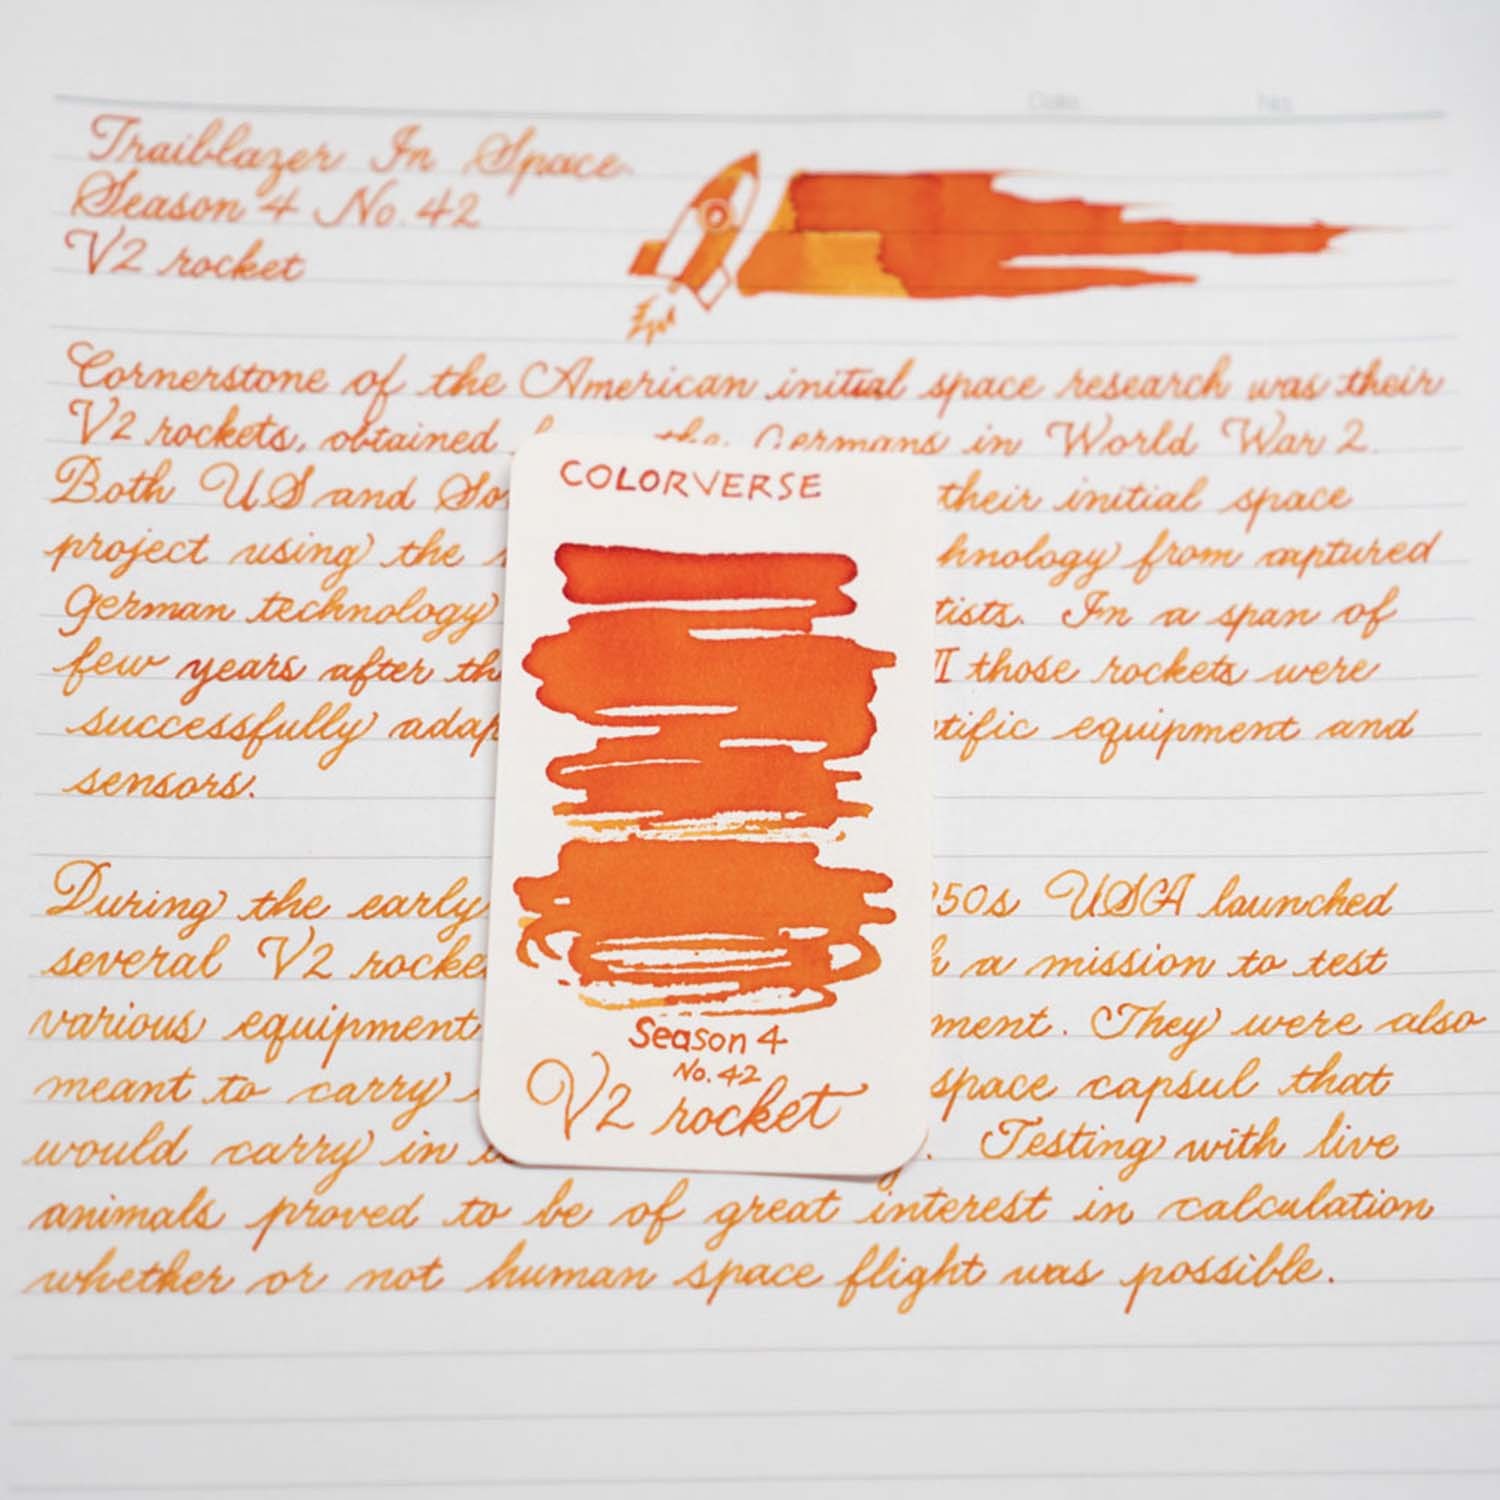 Date. No.
Trailblazer In Space.
Season 4 No. 42
V2 rocket
Cornerstone of the American initial space research was their
V2 rockets, obtained the Germans in World War 2.
Both US and their initial space
project using the from captured
German technology In a span of
few years after those rockets were
successfully equipment and
sensors.
During the early 50s USA launched
several V2 a mission to test
various equipment They were also
meant to carry space capsul that
would carry in Testing with live
animals proved to be of great interest in calculation
whether or not human space flight was possible.
COLORVERSE
Season 4
No. 42
V2 rocket